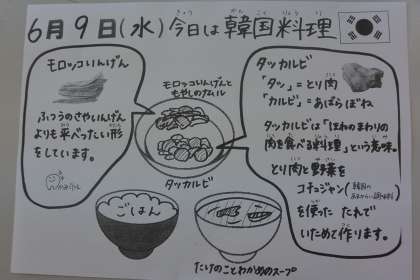 6月9日(水)今日は韓国料理
きょう かんこくりょうり
モロッコいんげん
ふつうのさやいんげん
よりも平べったい形
をしています。
モロッコいんげんと
もやしのナムル
タッカルビ
ごはん
たけのことわかめのスープ
タッカルビ
「タッ」=とり肉
「カルビ」=あばらぼね
タッカルビは「ほねのまわりの
肉を食べる料理」という意味。
とり肉と野菜を
コチュジャン(韓国の
を使った たれで
いためて作ります。